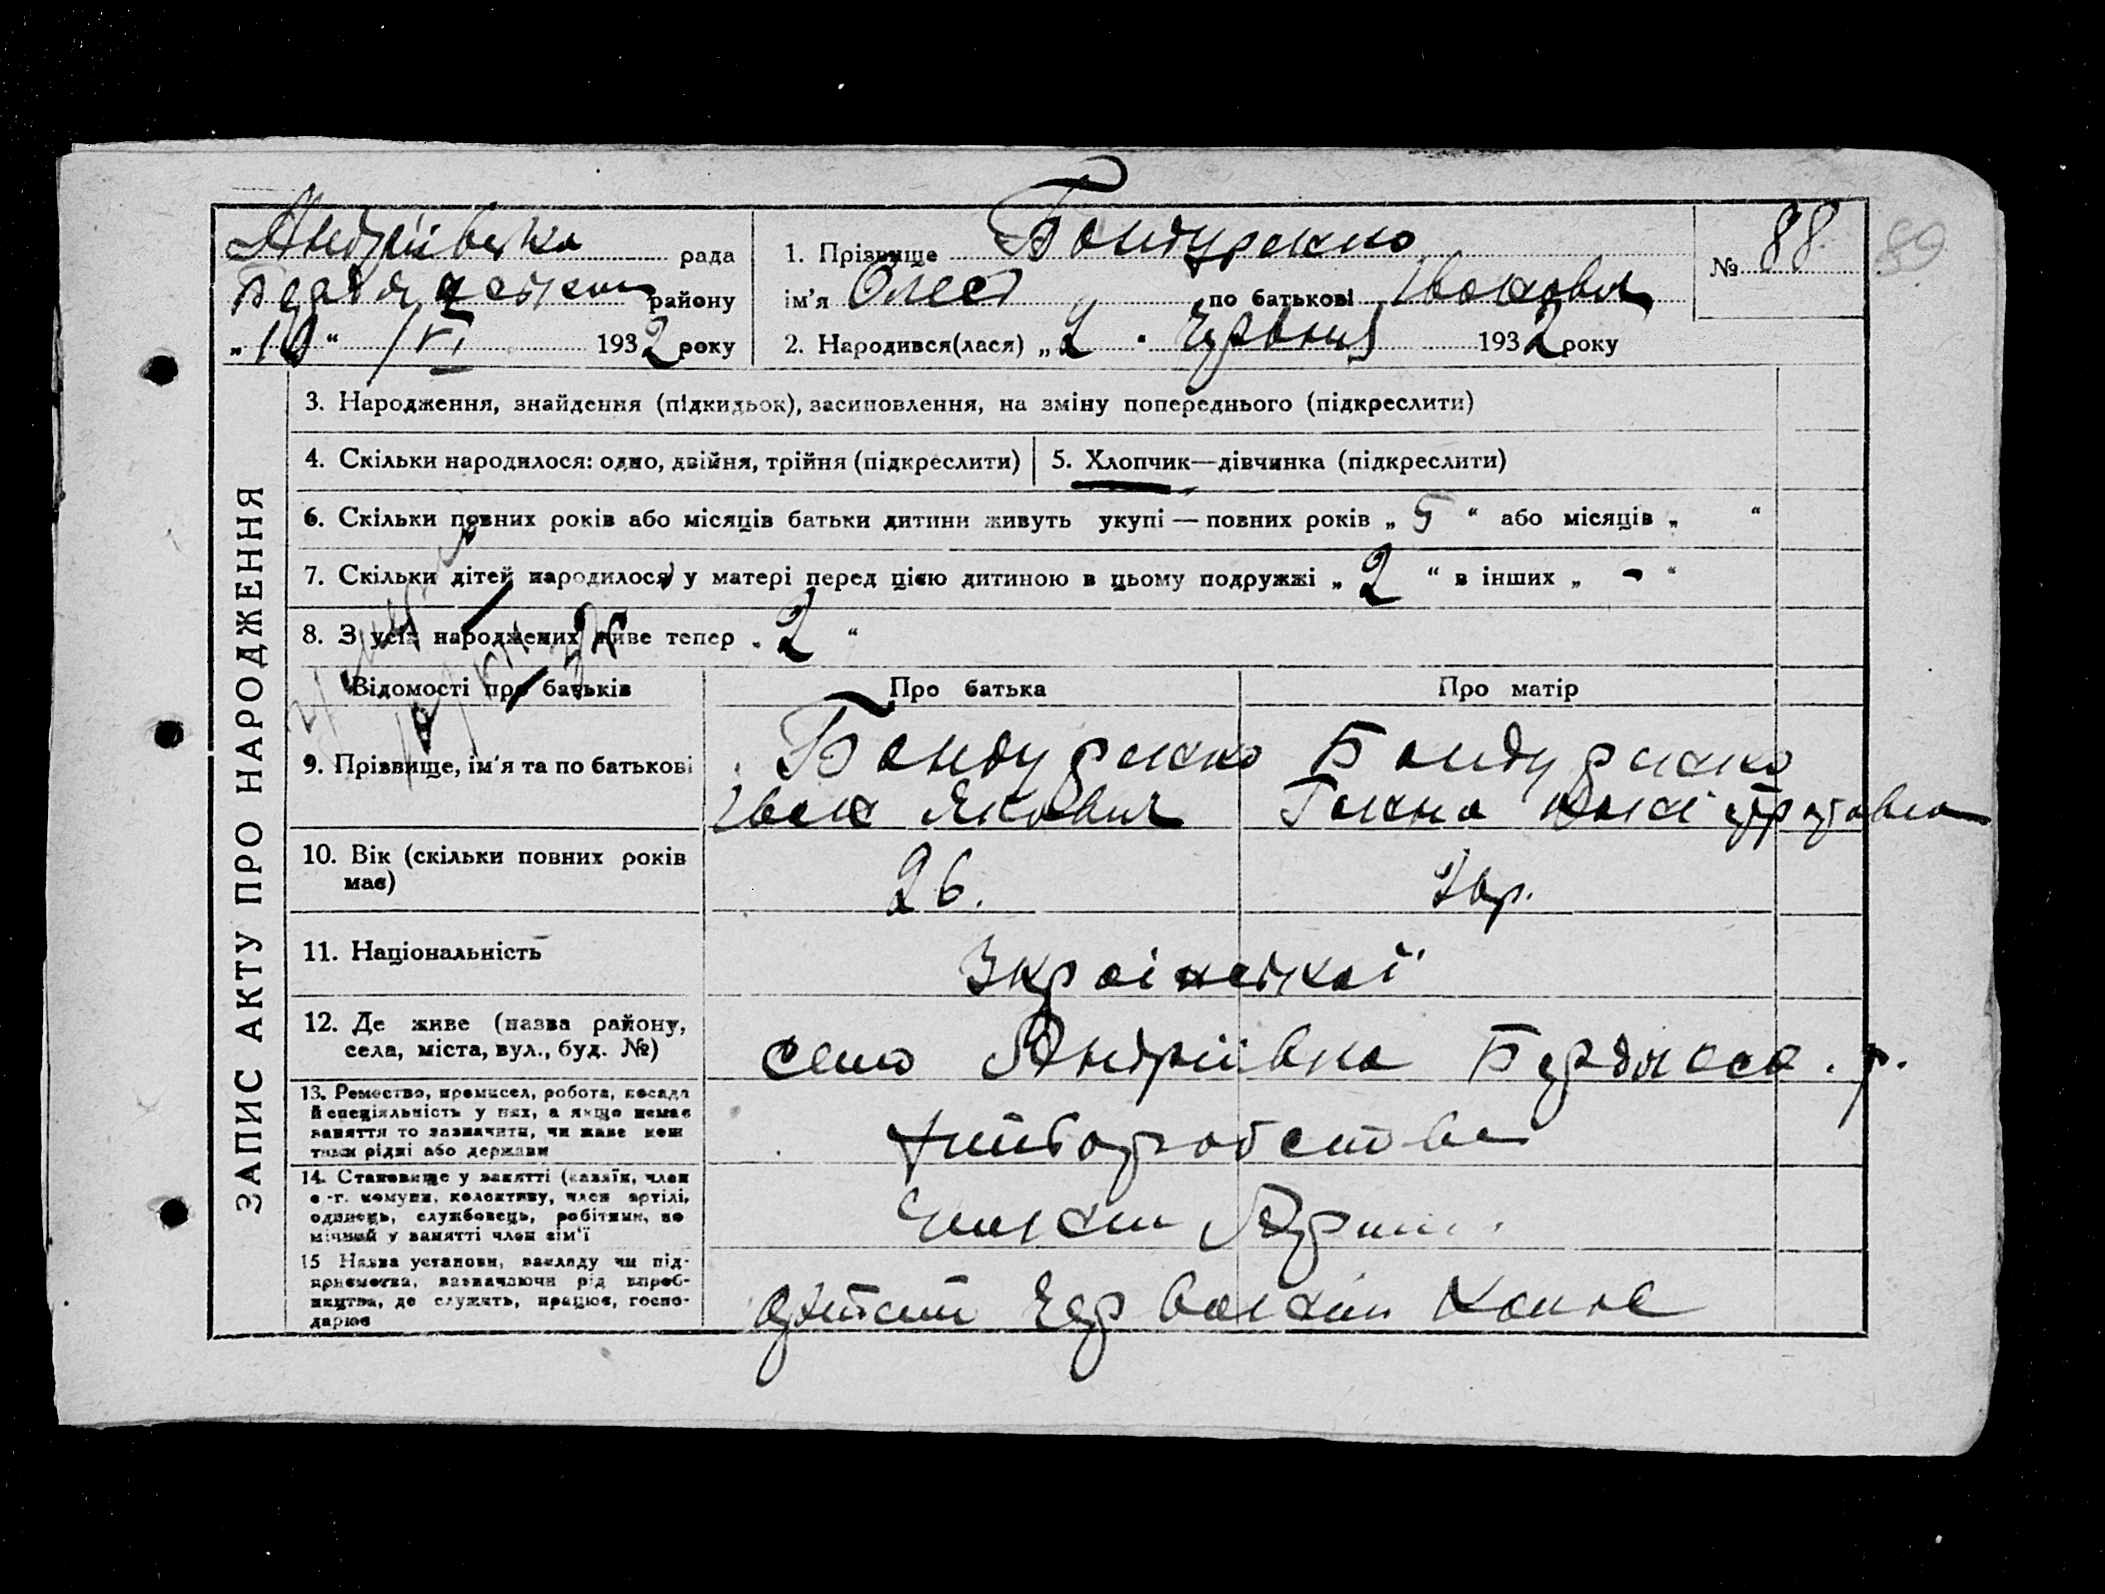 Андріївська рада
Бердянського району
„10“ /VI 1932 року
1. Прізвище Бондаренко
ім'я Олест по батькові Іванович
2. Народився(лася) „2“ Червня 1932 року
№ 88
89
ЗАПИС АКТУ ПРО НАРОДЖЕННЯ
3. Народження, знайдення (підкидьок), засиновлення, на зміну попереднього (підкреслити)
4. Скільки народилося: одно, двійня, трійня (підкреслити)
5. Хлопчик—дівчинка (підкреслити)
6. Скільки повних років або місяців батьки дитини живуть укупі — повних років „5“ або місяців „ “
7. Скільки дітей народилося у матері перед цією дитиною в цьому подружжі „2“ в інших „-“
8. З усіх народжених живе тепер „2“
Відомості про батьків
Про батька
Про матір
9. Прізвище, ім'я та по батькові
Бондаренко
Іван Якович
Бондаренко
Ганна
10. Вік (скільки повних років
має)
26.
11. Національність
Української
12. Де живе (назва району,
села, міста, вул., буд. №)
село Андріївка Бердянсь. р.
13. Ремество, промисел, робота, посада
й спеціяльність у них, а якщо немає
заняття то зазначити, чи живе кош
тами рідні або держави
Хліборобство
14. Становище у занятті (хазяїн, член
с.-г. комуни, колективу, член артілі,
одинець, службовець, робітник, по
мічний у занятті член сім'ї
Член Артілі
15 Назва установи, закладу чи під-
приємства, зазначаючи рід вироб-
ництва, де служить, працює, госпо-
дарює
Артіль